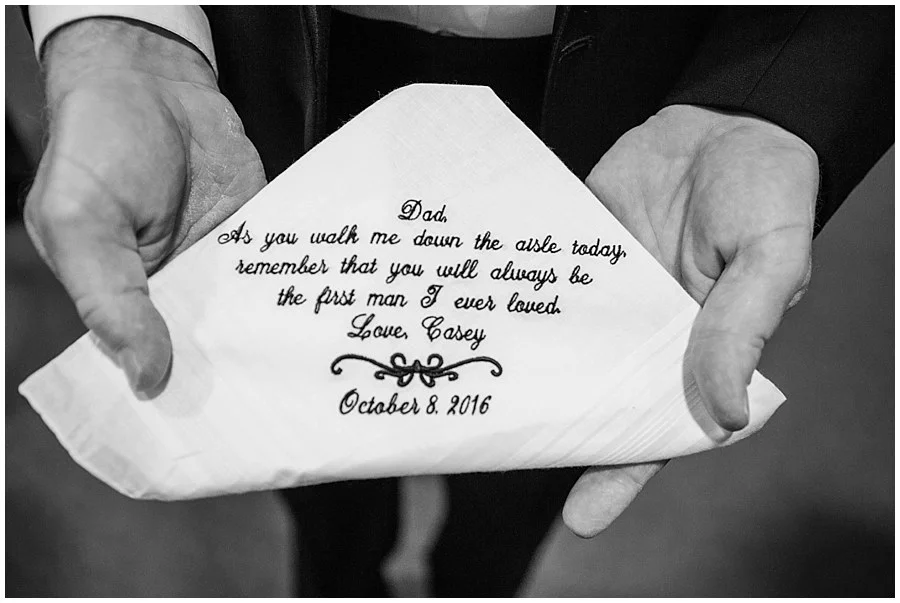 Dad,
As you walk me down the aisle today,
remember that you will always be
the first man I ever loved.
Love, Casey
October 8, 2016